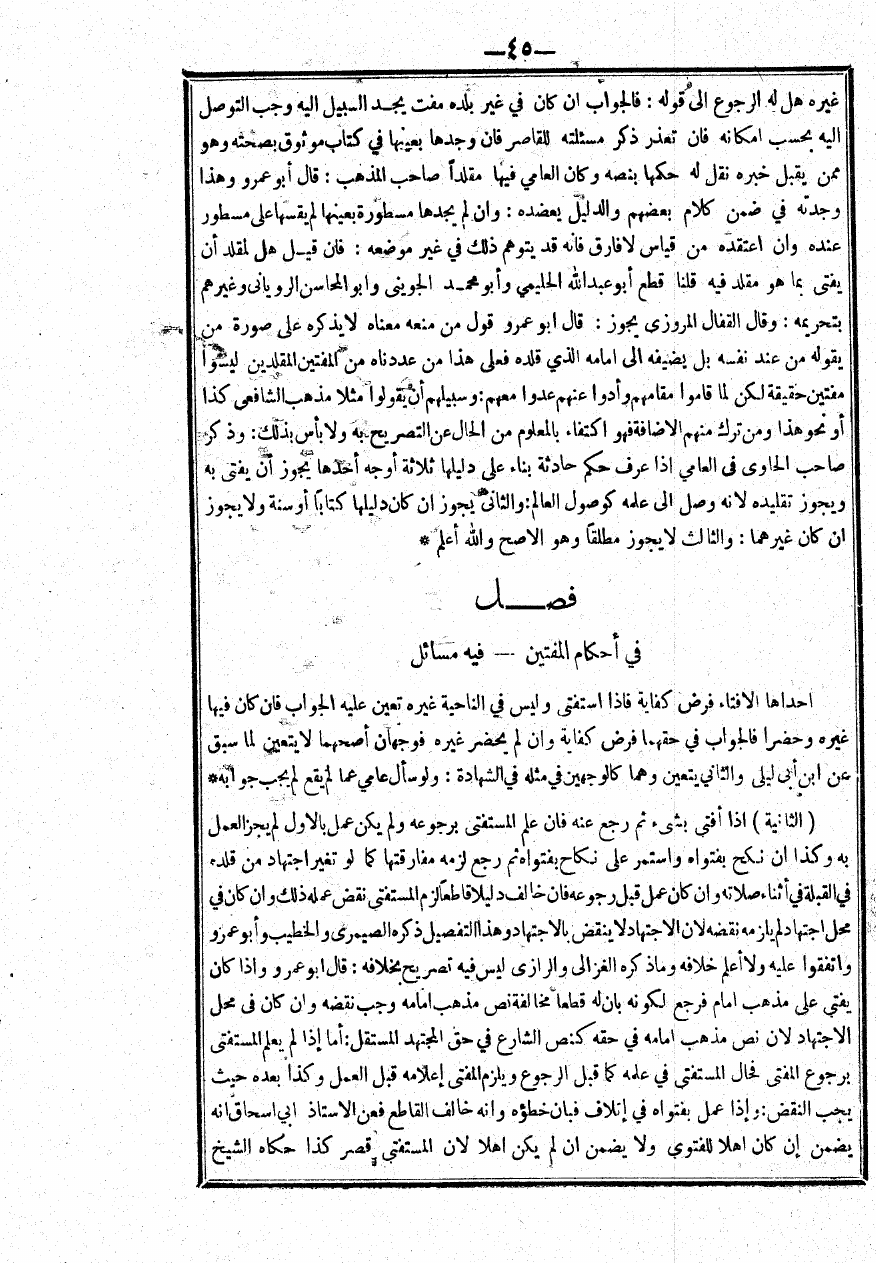 —٤٥—
غيره هل له الرجوع الى قوله : فالجواب ان كان في غير بلده مفت يجد السبيل اليه وجب التوصل
اليه بحسب امكانه فان تعذر ذكر مسئلته للقاصر فان وجدها بعينها في كتاب موثوق بصحته وهو
ممن يقبل خبره نقل له حكمها بنصه وكان العامي فيها مقلداً صاحب المذهب : قال أبو عمرو وهذا
وجدته في ضمن كلام بعضهم والدليل يعضده : وان لم يجدها مسطورة بعينها لم يقسها على مسطور
عنده وان اعتقده من قياس لا فارق فأنه قد يتوهم ذلك في غير موضعه : فان قيل هل لمقلد أن
يفتى بما هو مقلد فيه قلنا قطع أبو عبد الله الحليمي وأبو محمد الجوينى وابو المحاسن الرويانى وغيرهم
بتحريمه : وقال القفال المروزى يجوز : قال ابو عمرو قول من منعه معناه لا يذكره على صورة من
يقوله من عند نفسه بل يضيفه الى امامه الذي قلده فعلى هذا من عددناه من المفتين المقلدين ليسوا
مفتين حقيقة لكن لما قاموا مقامهم وأدوا عنهم عدوا معهم : وسبيلهم أن يقولوا مثلا مذهب الشافعى كذا
أو نحو هذا ومن ترك منهم الاضافة فهو اكتفاء بالمعلوم من الحال عن التصريح به ولا بأس بذلك : وذكر
صاحب الحاوى فى العامي اذا عرف حكم حادثة بناء على دليلها ثلاثة أوجه أحدها يجوز أن يفتى به
ويجوز تقليده لانه وصل الى علمه كوصول العالم : والثانى يجوز ان كان دليلها كتاباً أو سنة ولا يجوز
ان كان غيرهما : والثالث لا يجوز مطلقاً وهو الاصح والله أعلم *
فصل
في أحكام المفتين — فيه مسائل
احداها الافتاء فرض كفاية فاذا استفتى وليس في الناحية غيره تعين عليه الجواب فان كان فيها
غيره وحضرا فالجواب في حقهما فرض كفاية وان لم يحضر غيره فوجهان أصحهما لا يتعين لما سبق
عن ابن أبى ليلى والثاني يتعين وهما كالوجهين في مثله في الشهادة : ولو سأل عامي عما لم يقع لم يجب جوابه *
( الثانية ) اذا أفتى بشىء ثم رجع عنه فان علم المستفتى برجوعه ولم يكن عمل بالاول لم يجز العمل
به وكذا ان نكح بفتواه واستمر على نكاح بفتواه ثم رجع لزمه مفارقتها كما لو تغير اجتهاد من قلده
في القبلة في أثناء صلاته وان كان عمل قبل رجوعه فان خالف دليلا قاطعاً لزم المستفتى نقض عمله ذلك وان كان في
محل اجتهاد لم يلزمه نقضه لان الاجتهاد لا ينقض بالاجتهاد وهذا التفصيل ذكره الصيمرى والخطيب وأبو عمرو
واتفقوا عليه ولا أعلم خلافه وما ذكره الغزالى والرازى ليس فيه تصريح بخلافه : قال ابو عمرو واذا كان
يفتي على مذهب امام فرجع لكونه بان له قطعاً مخالفة نص مذهب امامه وجب نقضه وان كان فى محل
الاجتهاد لان نص مذهب امامه في حقه كنص الشارع في حق المجتهد المستقل : أما إذا لم يعلم المستفتى
برجوع المفتى فحال المستفتى في علمه كما قبل الرجوع ويلزم المفتى إعلامه قبل العمل وكذا بعده حيث
يجب النقض : وإذا عمل بفتواه في إتلاف فبان خطؤه وانه خالف القاطع فعن الاستاذ ابي اسحاق انه
يضمن إن كان اهلا للفتوي ولا يضمن ان لم يكن اهلا لان المستفتى قصر كذا حكاه الشيخ